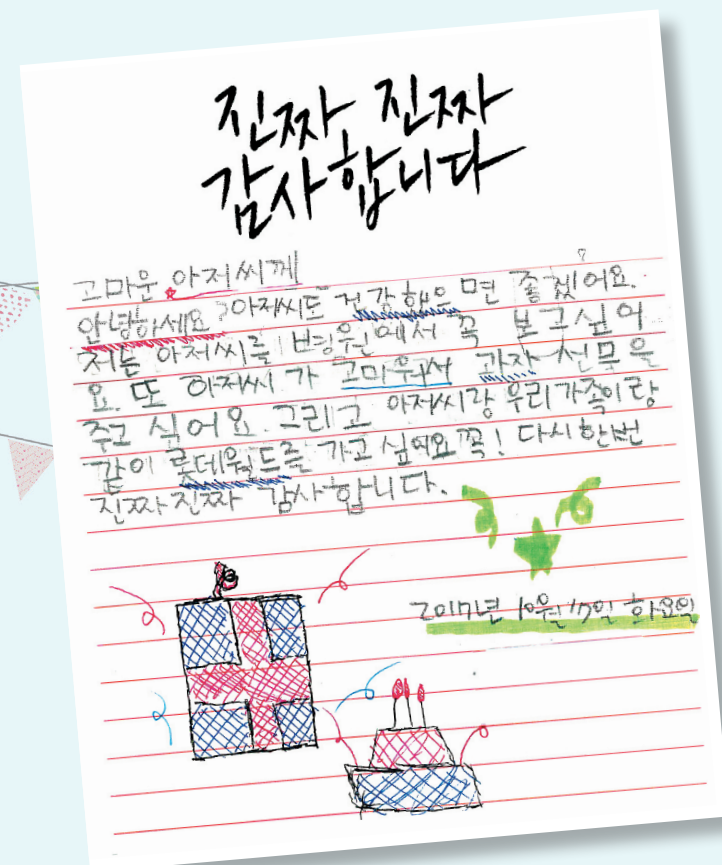 진짜 진짜
감사합니다
고마운 아저씨께
안녕하세요? 아저씨도 건강했으면 좋겠어요.
저는 아저씨를 병원에서 꼭 보고싶어
요. 또 아저씨가 고마워서 과자 선물을
주고 싶어요. 그리고 아저씨랑 우리가족이랑
같이 롯데월드를 가고 싶어요 꼭! 다시한번
진짜진짜 감사합니다.
2017년 10월 17일 화요일